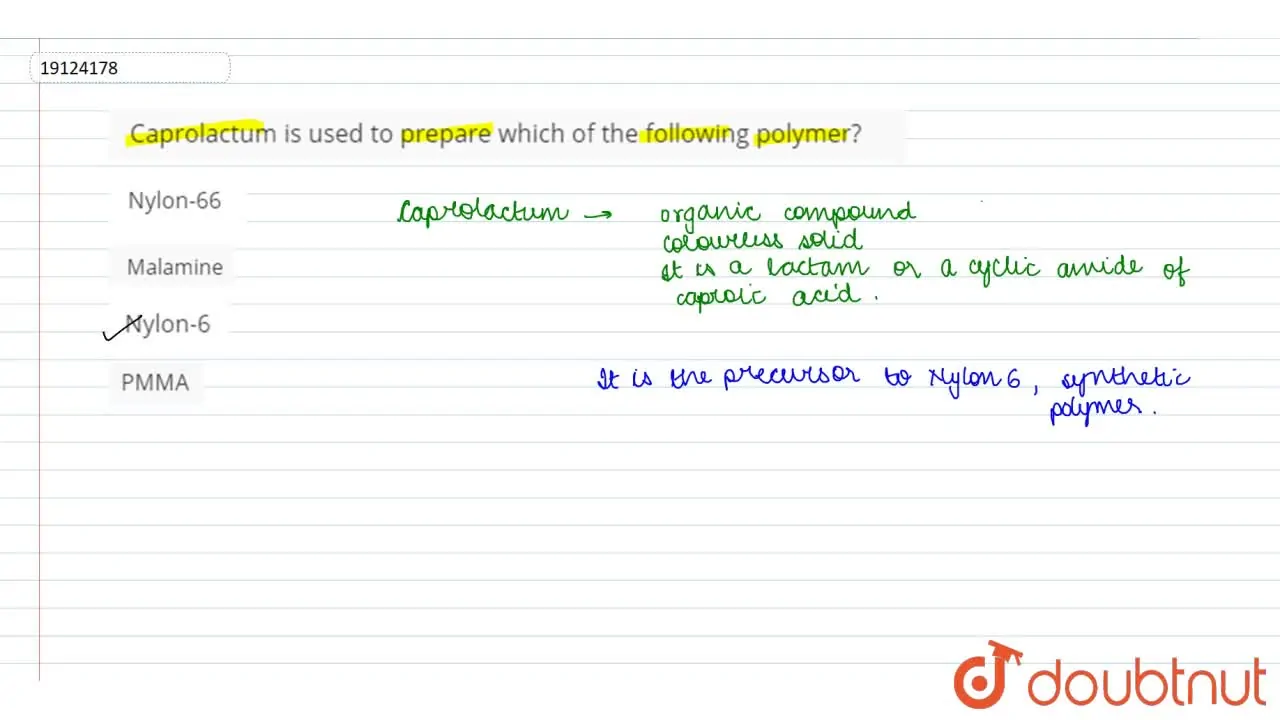 19124178
Caprolactum is used to prepare which of the following polymer?
Nylon-66
Caprolactum → organic compound
colourless solid
Malamine
It is a lactam or a cyclic amide of
caproic acid.
Nylon-6
PMMA
It is the precursor to Nylon 6, synthetic
polymer.
doubtnut